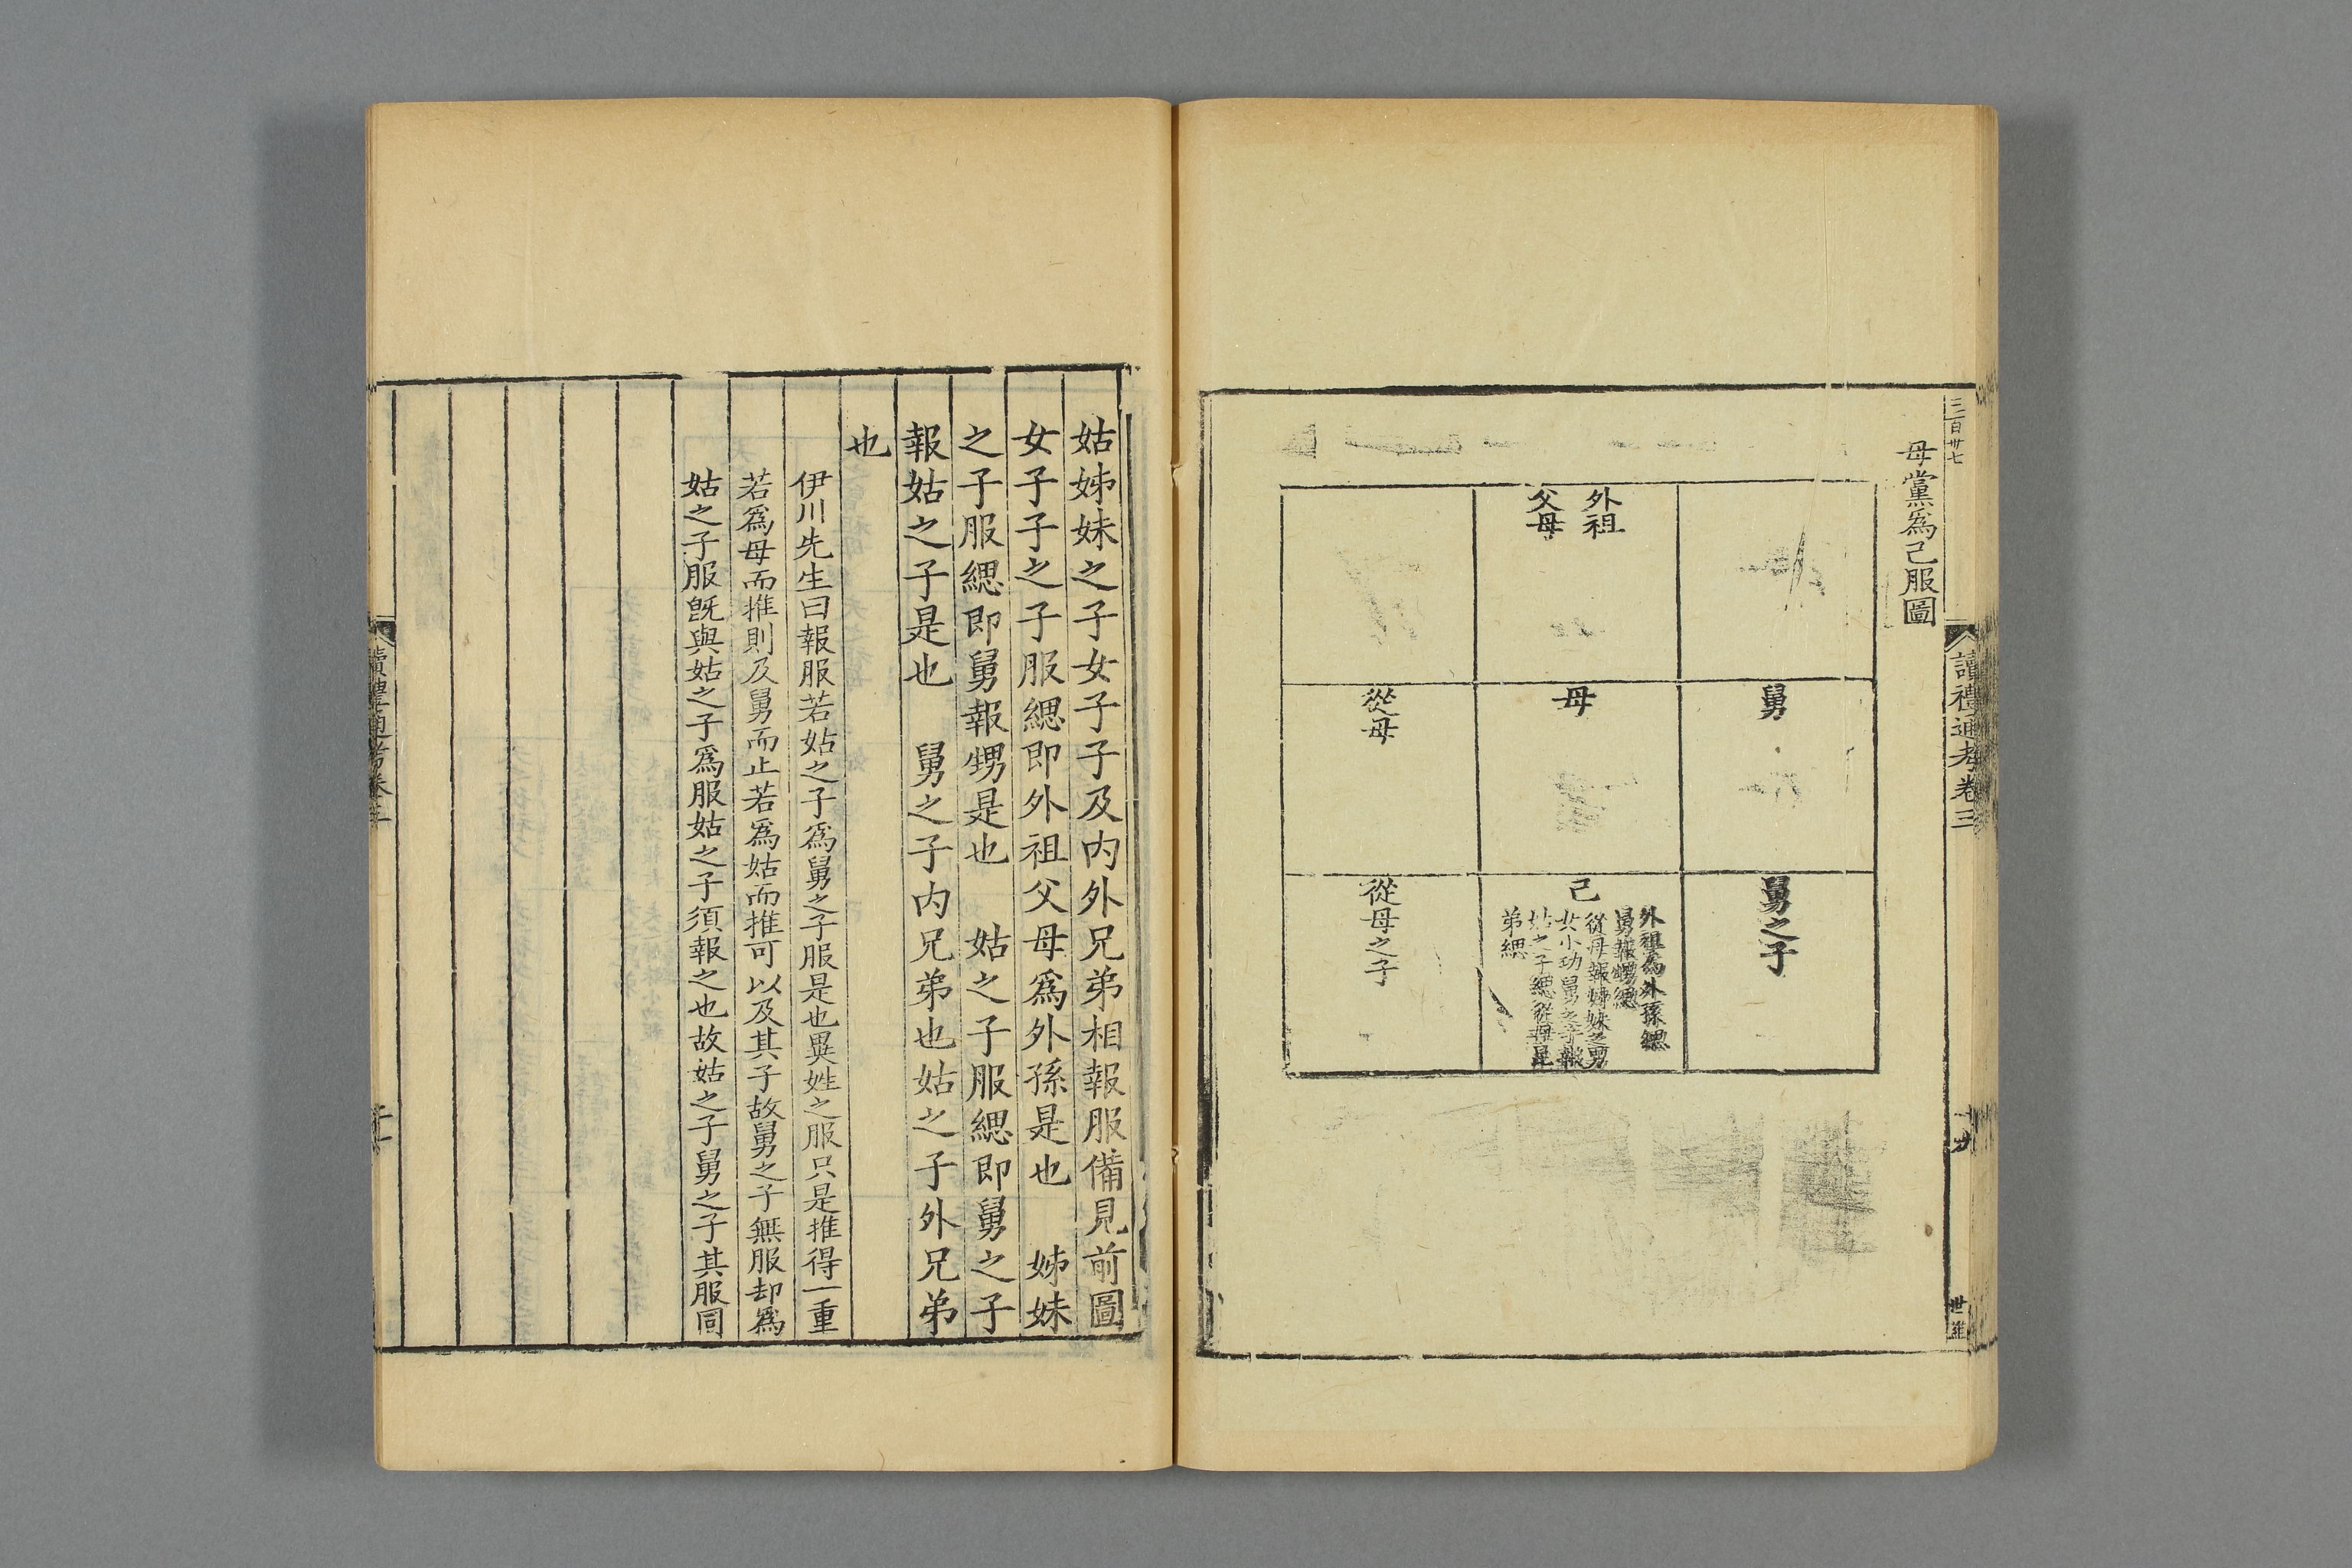 三百卅七
讀禮通考卷三
母黨爲己服圖
舅
舅之子
外祖
父母
母
己
外祖爲外孫緦
舅報甥緦
從母報姊妹之男
女小功舅之子報
姑之子緦從母昆
弟緦
從母
從母之子
姑姊妹之子女子子及内外兄弟相報服備見前圖
女子子之子服緦即外祖父母爲外孫是也　姊妹
之子服緦即舅報甥是也　姑之子服緦即舅之子
報姑之子是也　舅之子内兄弟也姑之子外兄弟
也
伊川先生曰報服若姑之子爲舅之子服是也異姓之服只是推得一重
若爲母而推則及舅而止若爲姑而推可以及其子故舅之子無服却爲
姑之子服旣與姑之子爲服姑之子須報之也故姑之子舅之子其服同
讀禮通考卷三